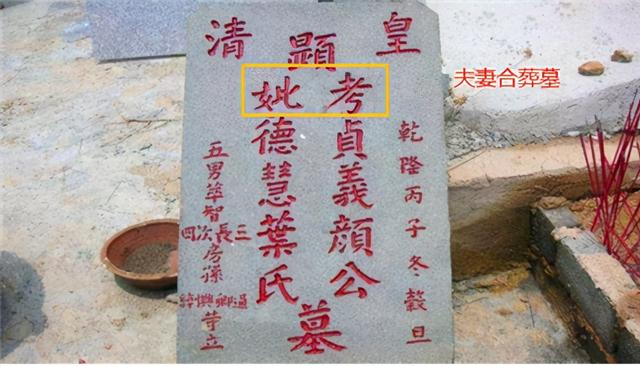 皇清
顯
乾隆丙子冬穀旦
考貞義顏公
妣德慧葉氏
墓
五男萃智
三長次四
房孫
過卿興
等立
夫妻合葬墓